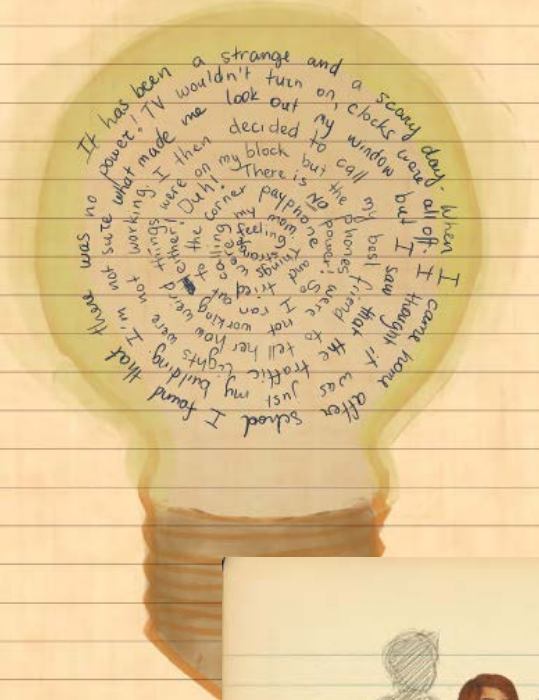 It has been a strange and a scary day. When I came home after school I found that there was no
power! TV wouldn't turn on, clocks were all off. I thought it was just my building. I'm not sure
what made me look out my window but I saw that the traffic lights were not working. I then
decided to call my best friend to tell her how weird things were on my block but the
phones were not working either! Duh! There is NO power! So I ran out to the corner
payphone and tried calling my mom. Things were feeling